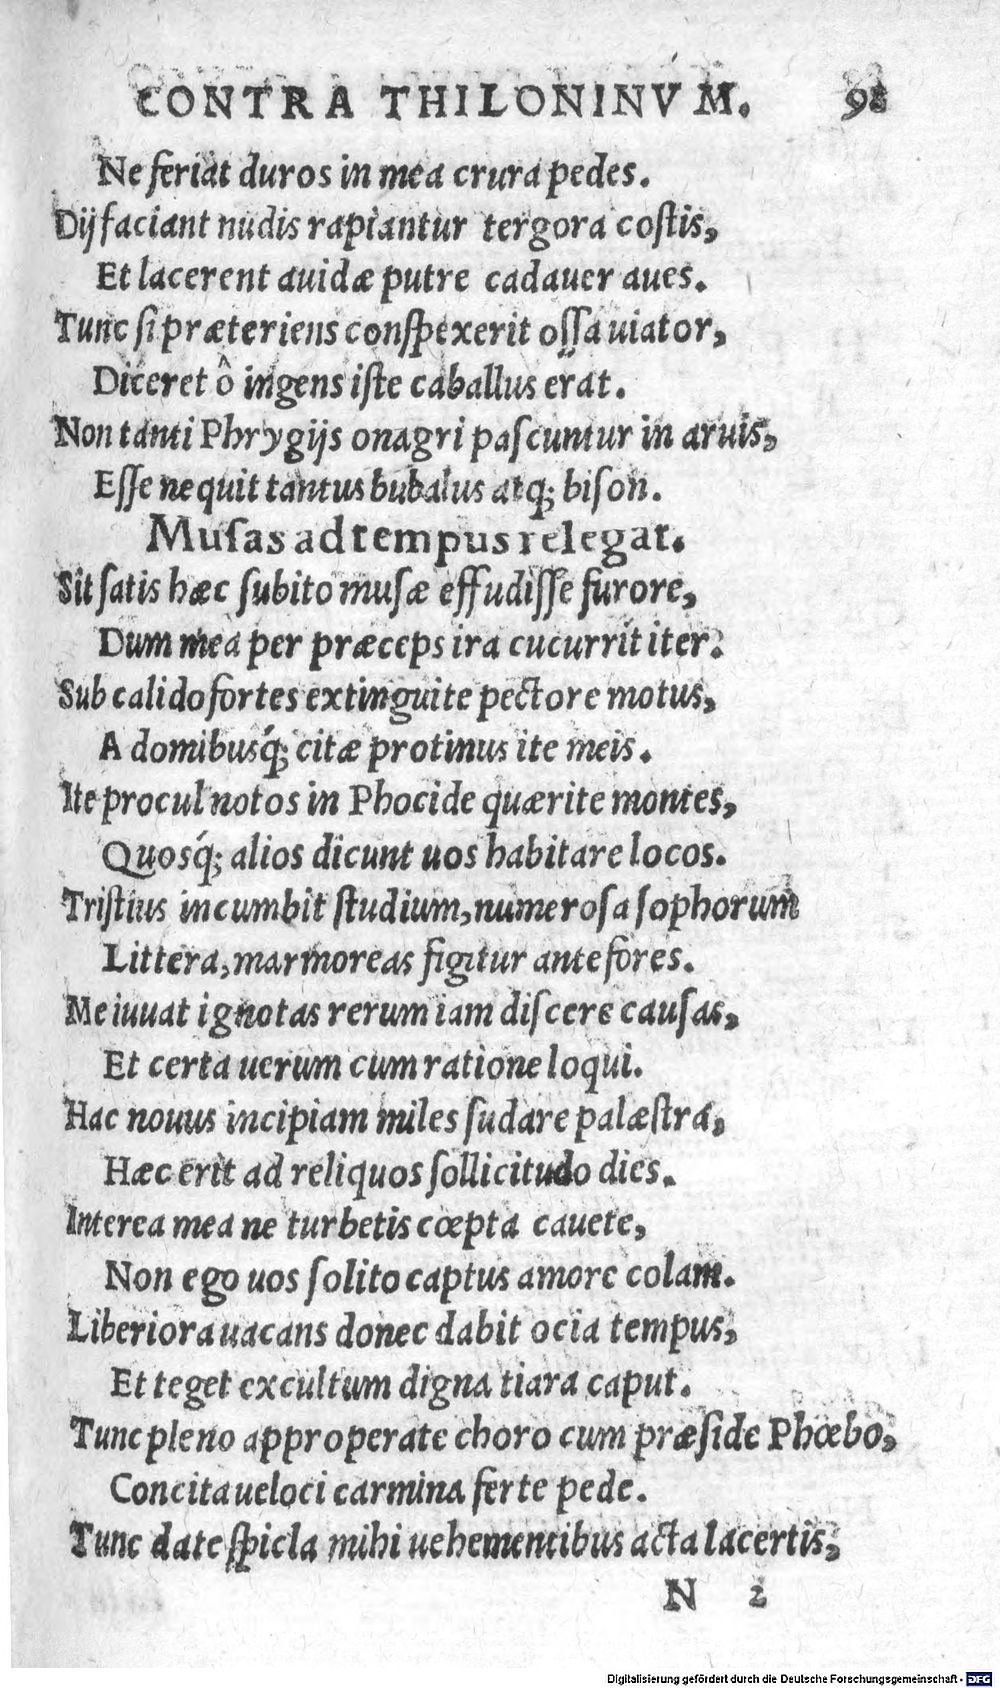 CONTRA THILONINVM. 98
Ne feriat duros in mea crura pedes.
Dij faciant nudis rapiantur tergora costis,
Et lacerent auidæ putre cadauer aues.
Tunc si præteriens conspexerit ossa uiator,
Diceret ô ingens iste caballus erat.
Non tanti Phrygijs onagri pascuntur in aruis,
Esse nequit tantus bubalus atq; bison.
Musas ad tempus relegat.
Sit satis hæc subito musæ effudisse furore,
Dum mea per præceps ira cucurrit iter.
Sub calido fortes extinguite pectore motus,
A domibusq́; citæ protinus ite meis.
Ite procul notos in Phocide quærite montes,
Quosq́; alios dicunt uos habitare locos.
Tristius incumbit studium, numerosa sophorum
Littera, marmoreas figitur ante fores.
Me iuuat ignotas rerum iam discere causas,
Et certa uerum cum ratione loqui.
Hac nouus incipiam miles sudare palæstra,
Hæc erit ad reliquos sollicitudo dies.
Interea mea ne turbetis cœpta cauete,
Non ego uos solito captus amore colam.
Liberiora uacans donec dabit ocia tempus,
Et teget excultum digna tiara caput.
Tunc pleno approperate choro cum præside Phœbo,
Concita ueloci carmina ferte pede.
Tunc date spicla mihi uehementibus acta lacertis,
N 2
Digitalisierung gefördert durch die Deutsche Forschungsgemeinschaft - DFG